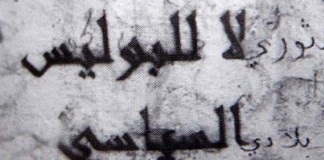 ثوري لا للبوليس
بلادي السياسي